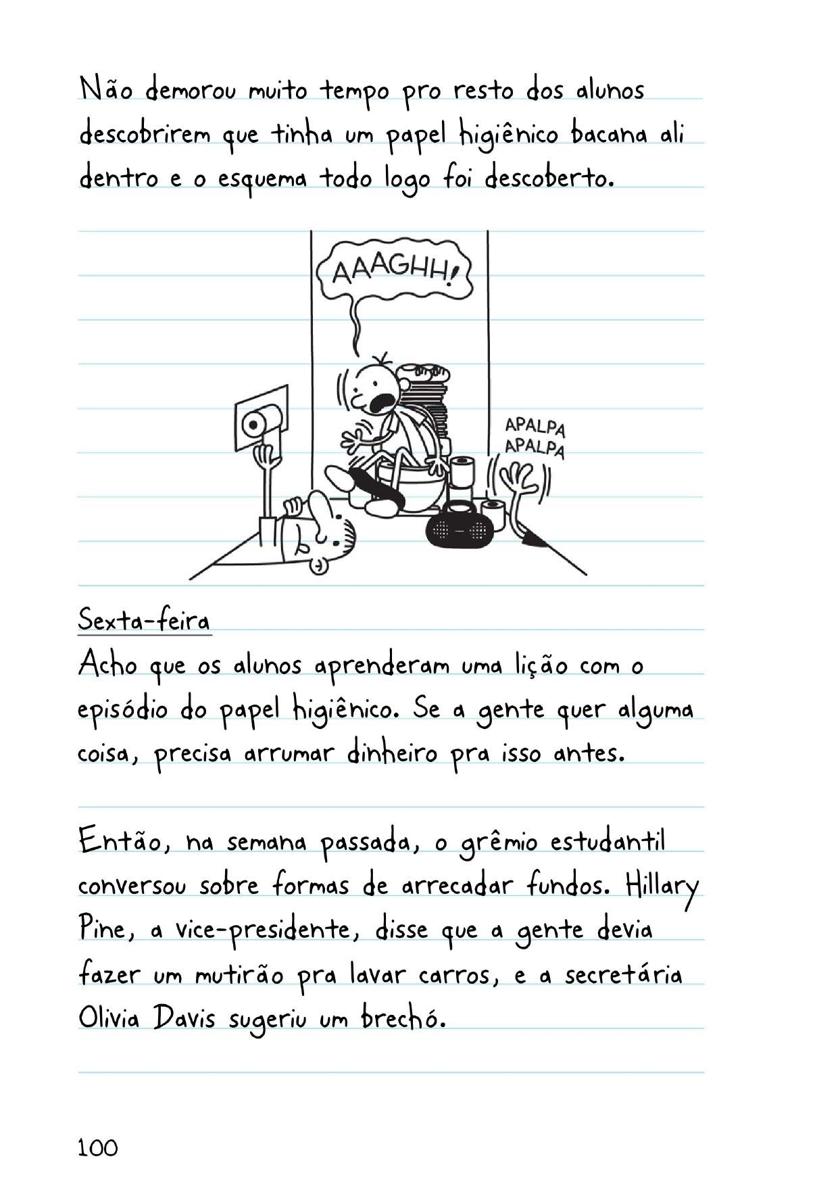 Não demorou muito tempo pro resto dos alunos
descobrirem que tinha um papel higiênico bacana ali
dentro e o esquema todo logo foi descoberto.
AAAGHH!
APALPA
APALPA
Sexta-feira
Acho que os alunos aprenderam uma lição com o
episódio do papel higiênico. Se a gente quer alguma
coisa, precisa arrumar dinheiro pra isso antes.
Então, na semana passada, o grêmio estudantil
conversou sobre formas de arrecadar fundos. Hillary
Pine, a vice-presidente, disse que a gente devia
fazer um mutirão pra lavar carros, e a secretária
Olivia Davis sugeriu um brechó.
100